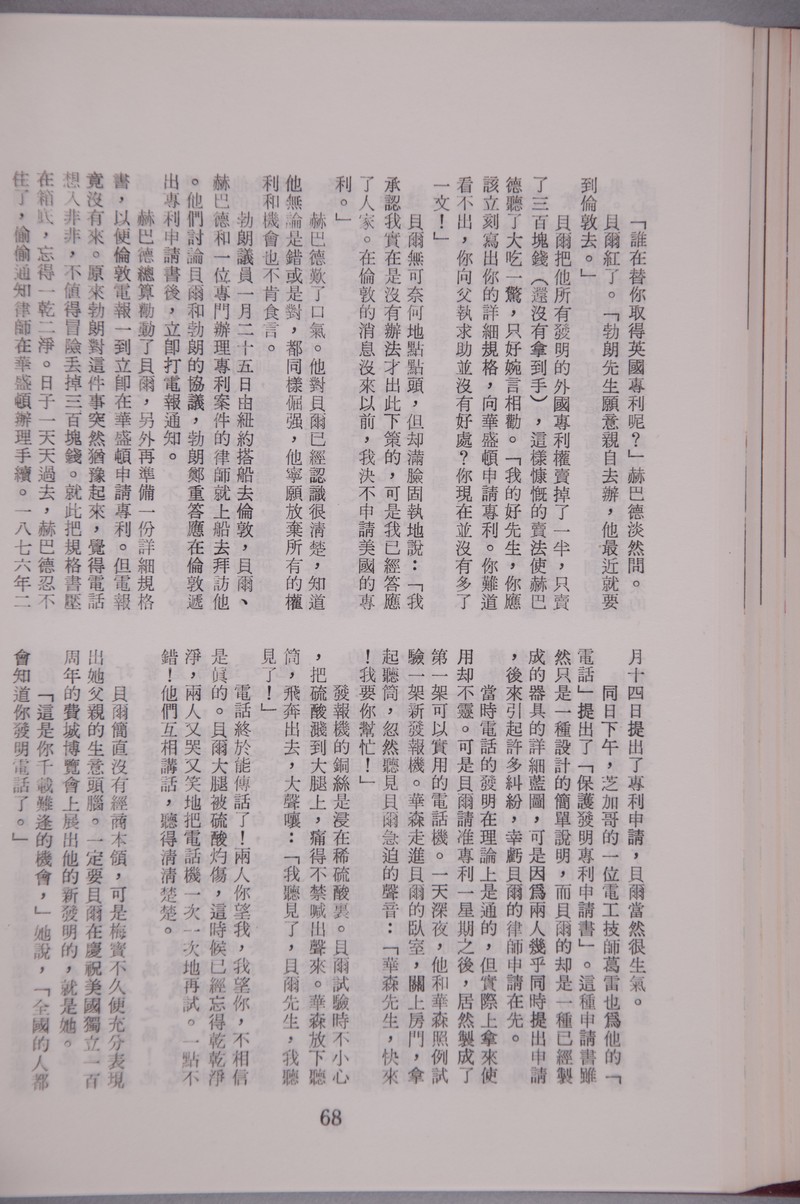 「誰在替你取得英國專利呢？」赫巴德淡然問。
貝爾紅了。「勃朗先生願意親自去辦，他最近就要
到倫敦去。」
貝爾把他所有發明的外國專利權賣掉了一半，只賣
了三百塊錢（還沒有拿到手），這樣慷慨的賣法使赫巴
德聽了大吃一驚，只好婉言相勸。「我的好先生，你應
該立刻寫出你的詳細規格，向華盛頓申請專利。你難道
看不出，你向父執求助並沒有好處？你現在並沒有多了
一文！」
貝爾無可奈何地點點頭，但却滿臉固執地說：「我
承認我實在是沒有辦法才出此下策的，可是我已經答應
了人家。在倫敦的消息沒來以前，我決不申請美國的專
利。」
赫巴德歎了口氣。他對貝爾已經認識很清楚，知道
他無論是錯或是對，都同樣倔强，他寧願放棄所有的權
利和機會也不肯食言。
勃朗議員一月二十五日由紐約搭船去倫敦，貝爾、
赫巴德和一位專門辦理專利案件的律師就上船去拜訪他
。他們討論貝爾和勃朗的協議，勃朗鄭重答應在倫敦遞
出專利申請書後，立卽打電報通知。
赫巴德總算勸動了貝爾，另外再準備一份詳細規格
書，以便倫敦電報一到立卽在華盛頓申請專利。但電報
竟沒有來。原來勃朗對這件事突然猶豫起來，覺得電話
想入非非，不値得冒險丟掉三百塊錢。就此把規格書壓
在箱底，忘得一乾二淨。日子一天天過去，赫巴德忍不
住了，偷偷通知律師在華盛頓辦理手續。一八七六年二
月十四日提出了專利申請，貝爾當然很生氣。
同日下午，芝加哥的一位電工技師葛雷也爲他的「
電話」提出了「保護發明專利申請書」。這種申請書雖
然只是一種設計的簡單說明，而貝爾的却是一種已經製
成的器具的詳細藍圖，可是因爲兩人幾乎同時提出申請
，後來引起許多糾紛，幸虧貝爾的律師申請在先。
當時電話的發明在理論上是通的，但實際上拿來使
用却不靈。可是貝爾請准專利一星期之後，居然製成了
第一架可以實用的電話機。一天深夜，他和華森照例試
驗一架新發報機。華森走進貝爾的臥室，關上房門，拿
起聽筒，忽然聽見貝爾急迫的聲音：「華森先生，快來
！我要你幫忙！」
發報機的銅絲是浸在稀硫酸裏。貝爾試驗時不小心
，把硫酸濺到大腿上，痛得不禁喊出聲來。華森放下聽
筒，飛奔出去，大聲嚷：「我聽見了，貝爾先生，我聽
見了！」
電話終於能傳話了！兩人你望我，我望你，不相信
是眞的。貝爾大腿被硫酸灼傷，這時候已經忘得乾乾淨
淨，兩人又哭又笑地把電話機一次一次地再試。一點不
錯！他們互相講話，聽得清清楚楚。
貝爾簡直沒有經商本領，可是梅寶不久便充分表現
出她父親的生意頭腦。一定要貝爾在慶祝美國獨立一百
周年的費城博覽會上展出他的新發明的，就是她。
「這是你千載難逢的機會，」她說，「全國的人都
會知道你發明電話了。」
68